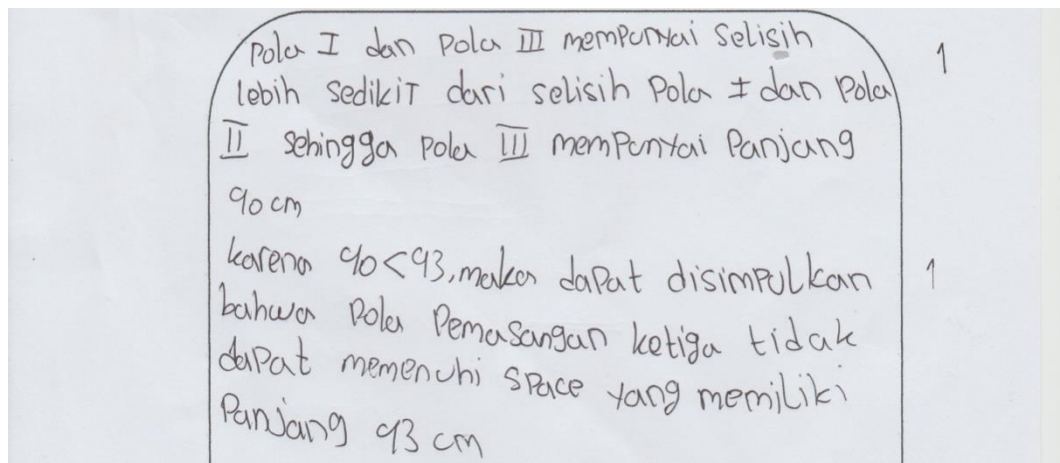 Pola I dan Pola III mempunyai Selisih 1
lebih sedikit dari selisih Pola I dan Pola
II sehingga Pola III mempunyai Panjang
90 cm
karena 90<93, maka dapat disimpulkan 1
bahwa Pola Pemasangan ketiga tidak
dapat memenuhi space yang memiliki
Panjang 93 cm